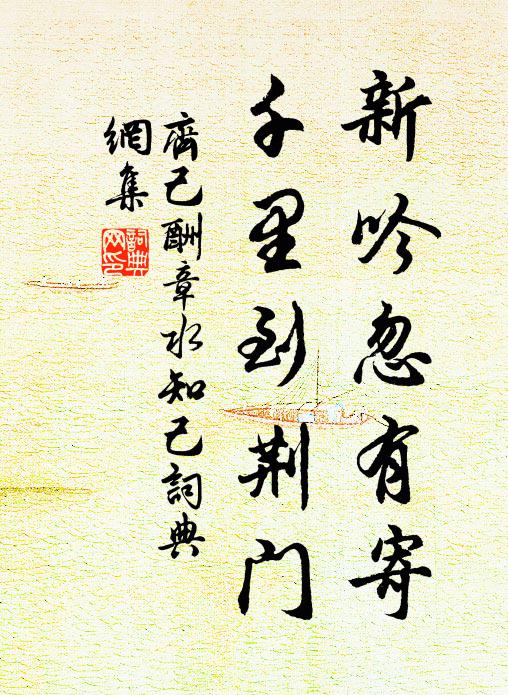 新吟忽有寄
千里到荆门
齊己酬章水知己詞典
網集
詞典
网印